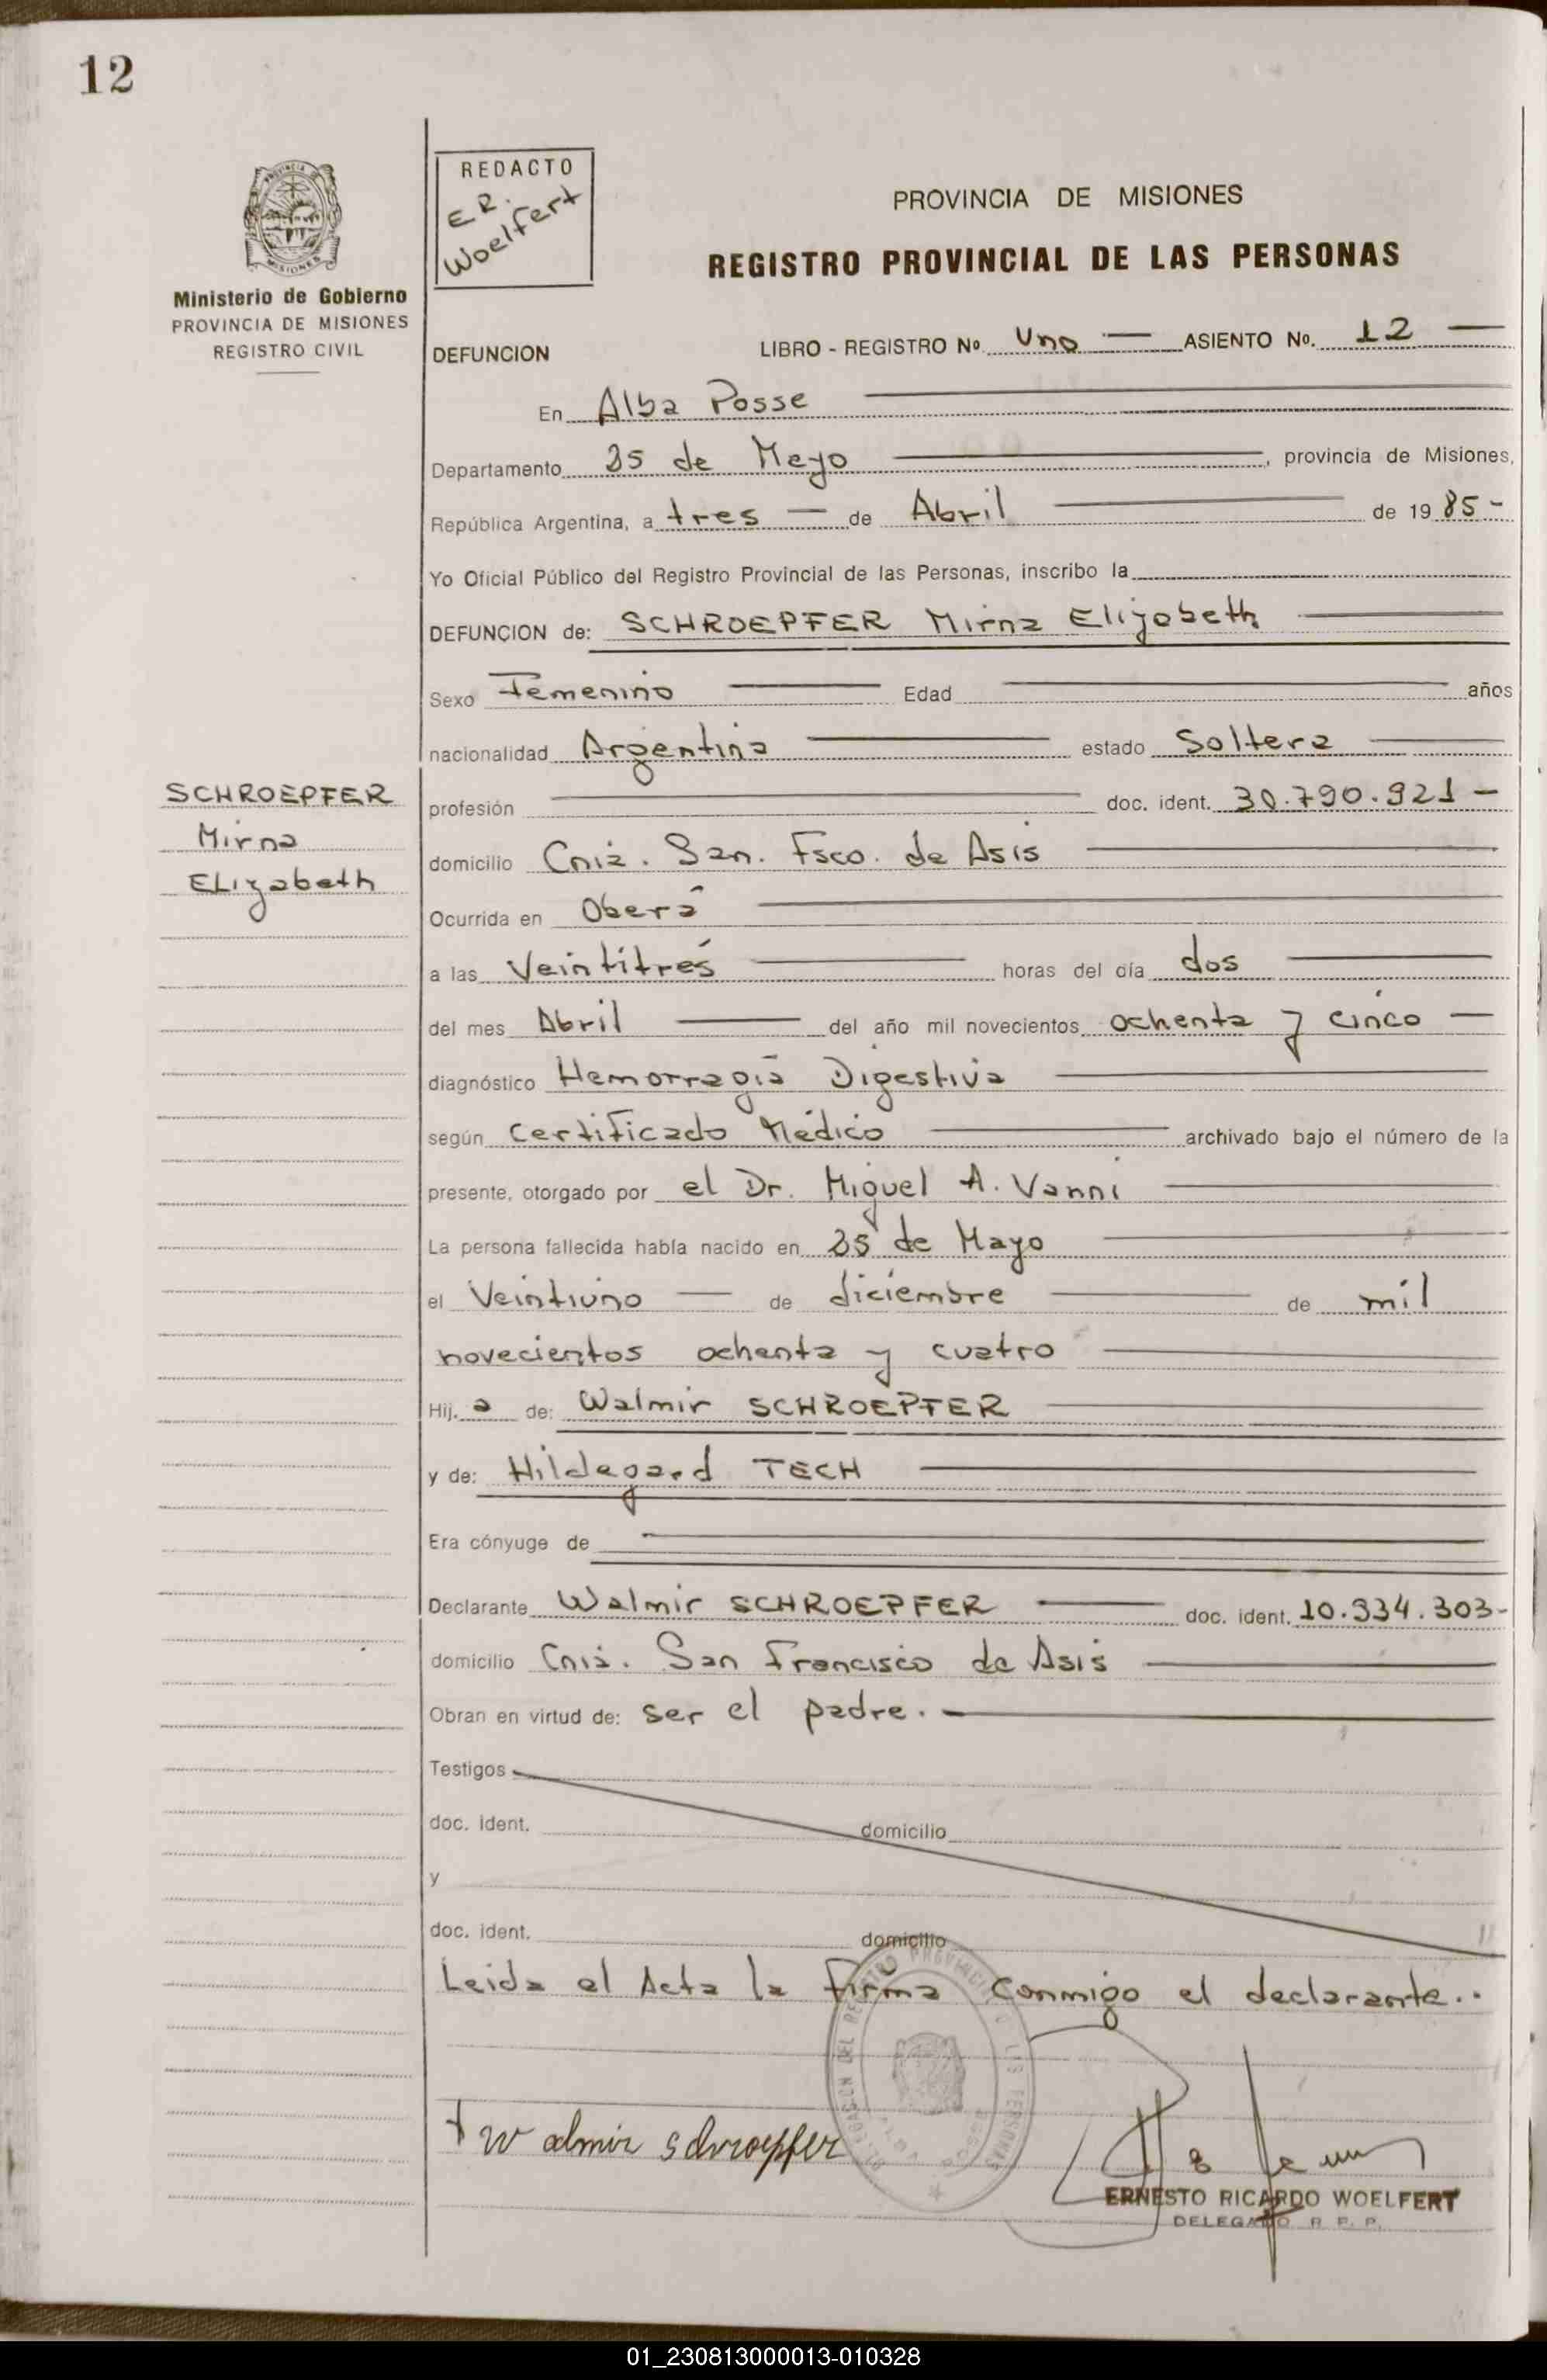 12
PROVINCIA DE MISIONES
Ministerio de Gobierno
PROVINCIA DE MISIONES
REGISTRO CIVIL
REDACTO
E R.
Woelfert
PROVINCIA DE MISIONES
REGISTRO PROVINCIAL DE LAS PERSONAS
DEFUNCION LIBRO - REGISTRO Nº Uno — ASIENTO Nº. 12 —
En Alba Posse
Departamento 25 de Mayo, provincia de Misiones,
República Argentina, a tres — de Abril de 1985-
Yo Oficial Público del Registro Provincial de las Personas, inscribo la
DEFUNCION de: SCHROEPFER Mirna Elizabeth
Sexo Femenino Edad años
nacionalidad Argentina estado Soltera
SCHROEPFER
Mirna
ELizabeth
profesión doc. ident. 30.790.921 —
domicilio Cnia. San. Fsco. de Asis
Ocurrida en Oberá
a las Veintitrés horas del día dos
del mes Abril del año mil novecientos ochenta y cinco —
diagnóstico Hemorragia Digestiva
según Certificado Médico archivado bajo el número de la
presente, otorgado por el Dr. Miguel A. Vanni
La persona fallecida había nacido en 25 de Mayo
el Veintiuno — de diciembre de mil
novecientos ochenta y cuatro
Hij. a de: Walmir SCHROEPFER
y de: Hildegard TECH
Era cónyuge de
Declarante Walmir SCHROEPFER doc. ident. 10.334.303-
domicilio Cnia. San Francisco de Asis
Obran en virtud de: ser el padre.
Testigos
doc. ident. domicilio
y
doc. ident. domicilio
Leida el Acta la firma conmigo el declarante..
Walmir schroepfer
ERNESTO RICARDO WOELFERT
DELEGADO R. P. P.
01_230813000013-010328